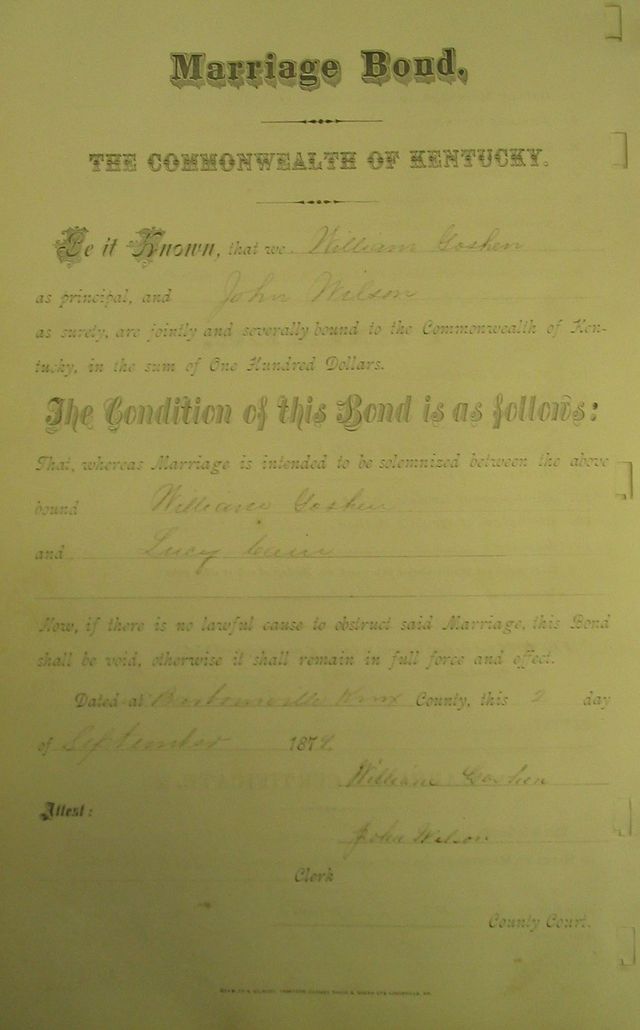 Marriage Bond.
THE COMMONWEALTH OF KENTUCKY.
Be it Known, that we William Goshen
as principal, and John Wilson
as surety, are jointly and severally bound to the Commonwealth of Ken-
tucky, in the sum of One Hundred Dollars.
The Condition of this Bond is as follows:
That, whereas Marriage is intended to be solemnized between the above
bound William Goshen
and Lucy
Now, if there is no lawful cause to obstruct said Marriage, this Bond
shall be void, otherwise it shall remain in full force and effect.
Dated at Knox County, this 2 day
of September 187
William Goshen
Attest:
John Wilson
Clerk
County Court.